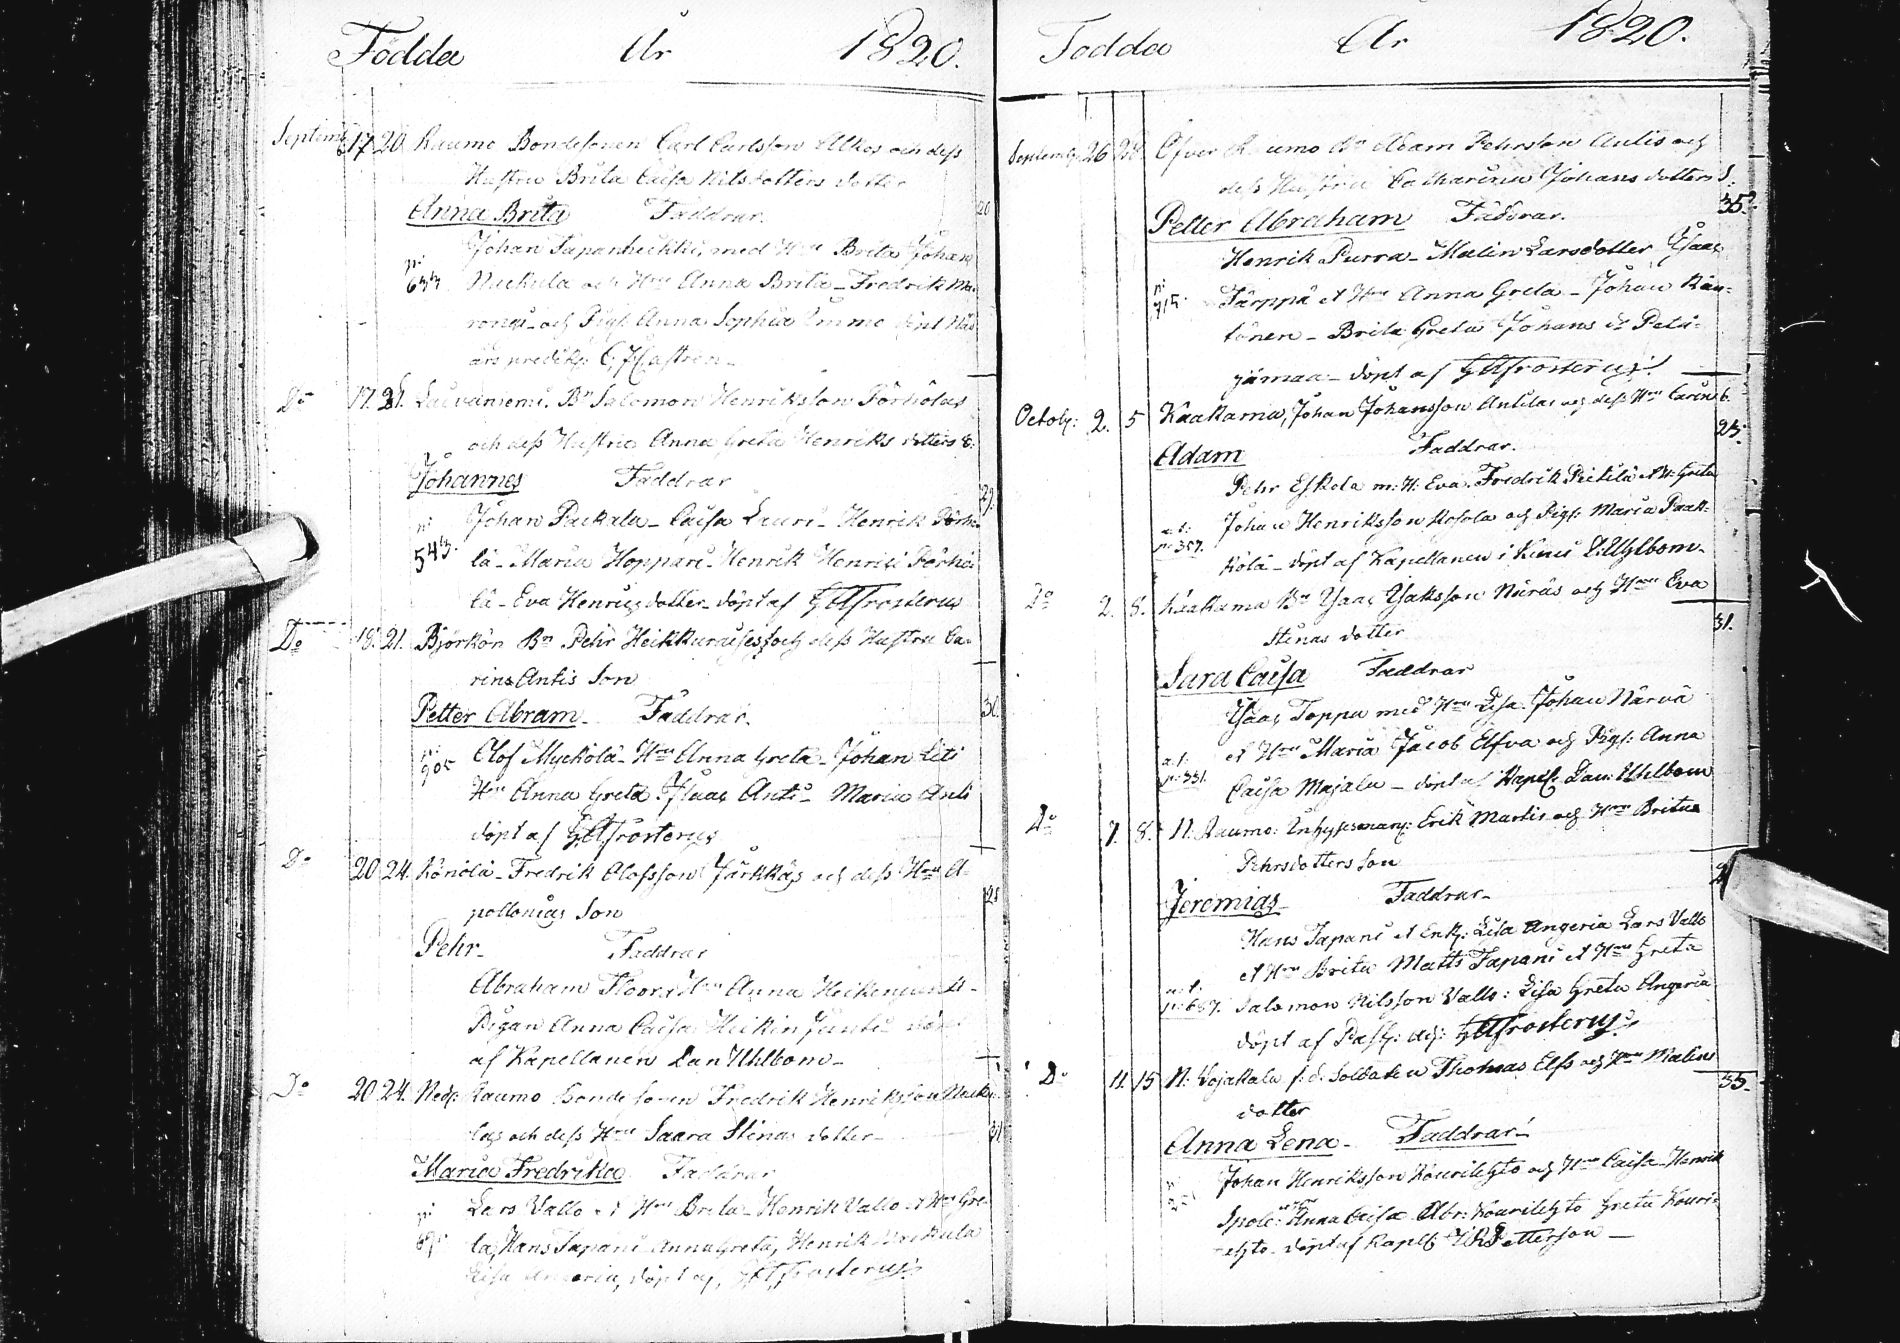 Födda År 1820.
Septemb 17 20. Raumo Bondesonen Carl Carlsson Alkos och dess
Hustru Brita Caisa Nilsdotters dotter
Anna Brita Faddrar.
Johan Tapanheickki, med Hru Brita Johan
633 Nackula och Hru Anna Brita - Fredrik
och Pig: Anna Sophia Emmo
Castrén -
Do 17. 21. Laivaniemi. Bn Salomon Henriksson Pörhölas
och dess Hustru Anna Greta Henriks dotters S:
Johannes Faddrar 29.
Johan Packala - Caisa Lauri - Henrik Pörhö-
543. lä - Maria Hoppari - Henrik Henrici Pörhö-
lä - Eva Henricsdotter - döpt af Frosterus
Do 18. 21. Björkön Bn Pehr Heikkurauses och dess Hustru Ca-
rins Antis Son
Petter Abram - Faddrar.
905 Olof Myckölä - Hru Anna Greta - Johan Liti
Hru Anna Greta. Isaac Anti - Maria Anti
döpt af Frosterus
Do 20 24. Könölä - Fredrik Olofsson Järkkäs och dess Hru A-
pollonias Son 28
Pehr - Faddrar
Abraham Floor Hru Anna
Pigan Anna Caisa Heikin Junti - döpt
af Kapellanen Dan Uhlbom -
Do 20 24. Ned: Raumo Bonde sonen Fredrik Henriksson Nacku-
las och dess Hru Saara Stinas dotter - 31
Maria Fredrika Faddrar
Lars Vallo et Hru Brita - Henrik Vallo et Hru Gre-
ta, Hans Tapani Anna Greta, Henrik Nackula
Lisa Angeria, döpt af, Frosterus
Födda År 1820.
Septembr 26 28 Öfver Raumo Bn Adam Pehrsson Antis och
dess Hustru Catharina Johans dotters S:
Petter Abraham Faddrar. 35.
Henrik Purra - Malin Larsdotter Isaac
715. Tärppä et Hru Anna Greta - Johan Kän-
tönen - Brita Greta Johans dr Petä-
jämaa - döpt af Frosterus
Octobr: 2. 5 Kaakama, Johan Johansson Anttilas och dess Hru Carins b.
Adam Faddrar. 23.
Pehr Eskola m: H: Eva. Fredrik Pietilä et H: Greta
Johan Henriksson Rosola och Pig: Maria Paak-
p: 357. kola - döpt af Kapellanen i Kemi D: Uhlbom -
Do 2. 8. Kaakama Bn Isaac Isaksson Nuräs och Hru Eva
Stinas dotter 31.
Sara Caisa Faddrar
Isaac Toppu med Hru Lisa. Johan Närvä
et Hru Maria Jacob Elfva och Pig: Anna
p: 331. Caisa Majala - döpt af Kapell: Dan: Uhlbom
Do 7. 8. N: Raumo: Inhysesman: Erik Martis och Hru Britas
Pehrsdotters Son
Jeremias Faddrar -
Hans Tapani et Enk: Lisa Angeria Lars Vallo
et Hru Brita Matts Tapani et Hru Greta
p: 687. Salomon Nilsson Vallo: Lisa Greta Angeria
döpt af Past: adj: Frosterus
Do 11. 15 N: Vojakala f: d: Soldaten Thomas Elfs och Hru Malins
dotter 35.
Anna Lena - Faddrar -
Johan Henriksson Kourilehto och Hru Caisa - Henrik
Spole: Anna Caisa Abr: Kourilehto Greta Kouri-
lehto - döpt af Kapell: Petterson -